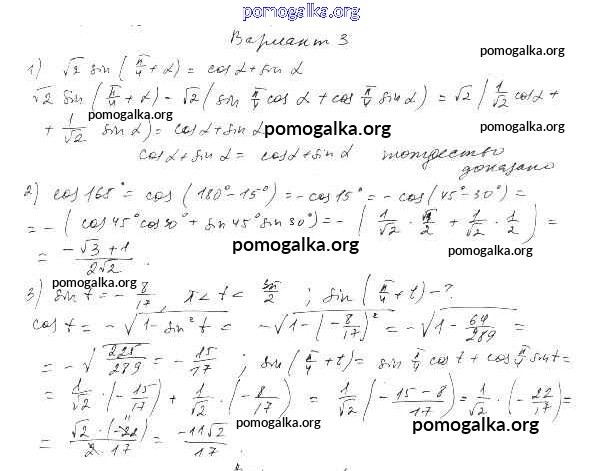 pomogalka.org
Вариант 3
pomogalka.org
1) √2 sin(π/4 + α) = cos α + sin α
√2 sin(π/4 + α) = √2(sin π/4 cos α + cos π/4 sin α) = √2(1/√2 cos α +
pomogalka.org
+ 1/√2 sin α) = cos α + sin α
pomogalka.org
pomogalka.org
cos α + sin α = cos α + sin α тождество
доказано
pomogalka.org
2) cos 165° = cos(180° - 15°) = -cos 15° = -cos(45° - 30°) =
= -(cos 45° cos 30° + sin 45° sin 30°) = -(1/√2 · √3/2 + 1/√2 · 1/2) =
= -√3 + 1/2√2.
pomogalka.org
pomogalka.org
pomogalka.org
3) sin t = -8/17, π < t < 3π/2; sin(π/4 + t) - ?
cos t = -√1 - sin² t = -√1 - (-8/17)² = -√1 - 64/289 =
pomogalka.org
pomogalka.org
= -√225/289 = -15/17; sin(π/4 + t) = sin π/4 cos t + cos π/4 sin t =
pomogalka.org
= 1/√2 · (-15/17) + 1/√2 · (-8/17) = 1/√2 (-15 - 8/17) = 1/√2 · (-22/17) =
pomogalka.org
= √2 · (-22)/2 · 17 = -11√2/17.
pomogalka.org
pomogalka.org